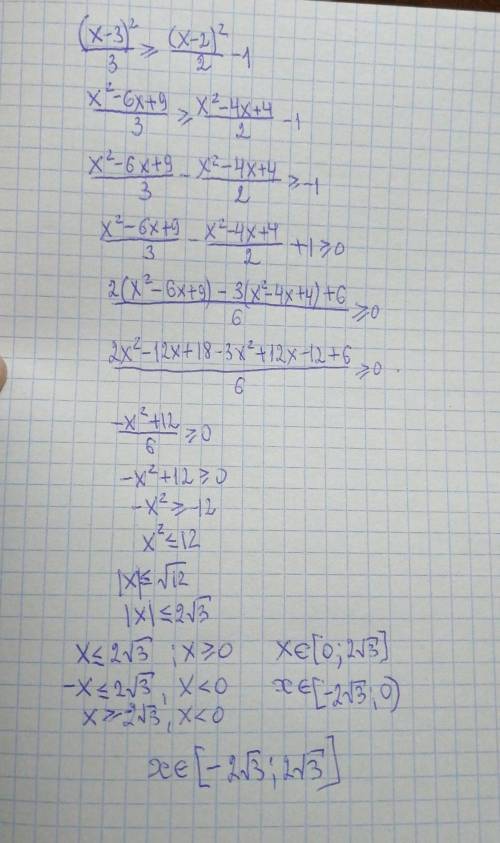 (x-3)²/3 ≥ (x-2)²/2 -1
x²-6x+9/3 ≥ x²-4x+4/2 -1
x²-6x+9/3 - x²-4x+4/2 ≥ -1
x²-6x+9/3 - x²-4x+4/2 +1 ≥ 0
2(x²-6x+9) - 3(x²-4x+4) + 6/6 ≥ 0
2x²-12x+18-3x²+12x-12+6/6 ≥ 0
-x²+12/6 ≥ 0
-x²+12 ≥ 0
-x² ≥ -12
x² ≤ 12
|x| ≤ √12
|x| ≤ 2√3
x ≤ 2√3 ; x ≥ 0 x ∈ [0; 2√3]
-x ≤ 2√3, x < 0 x ∈ [-2√3; 0)
x ≥ -2√3, x < 0
x ∈ [-2√3; 2√3]